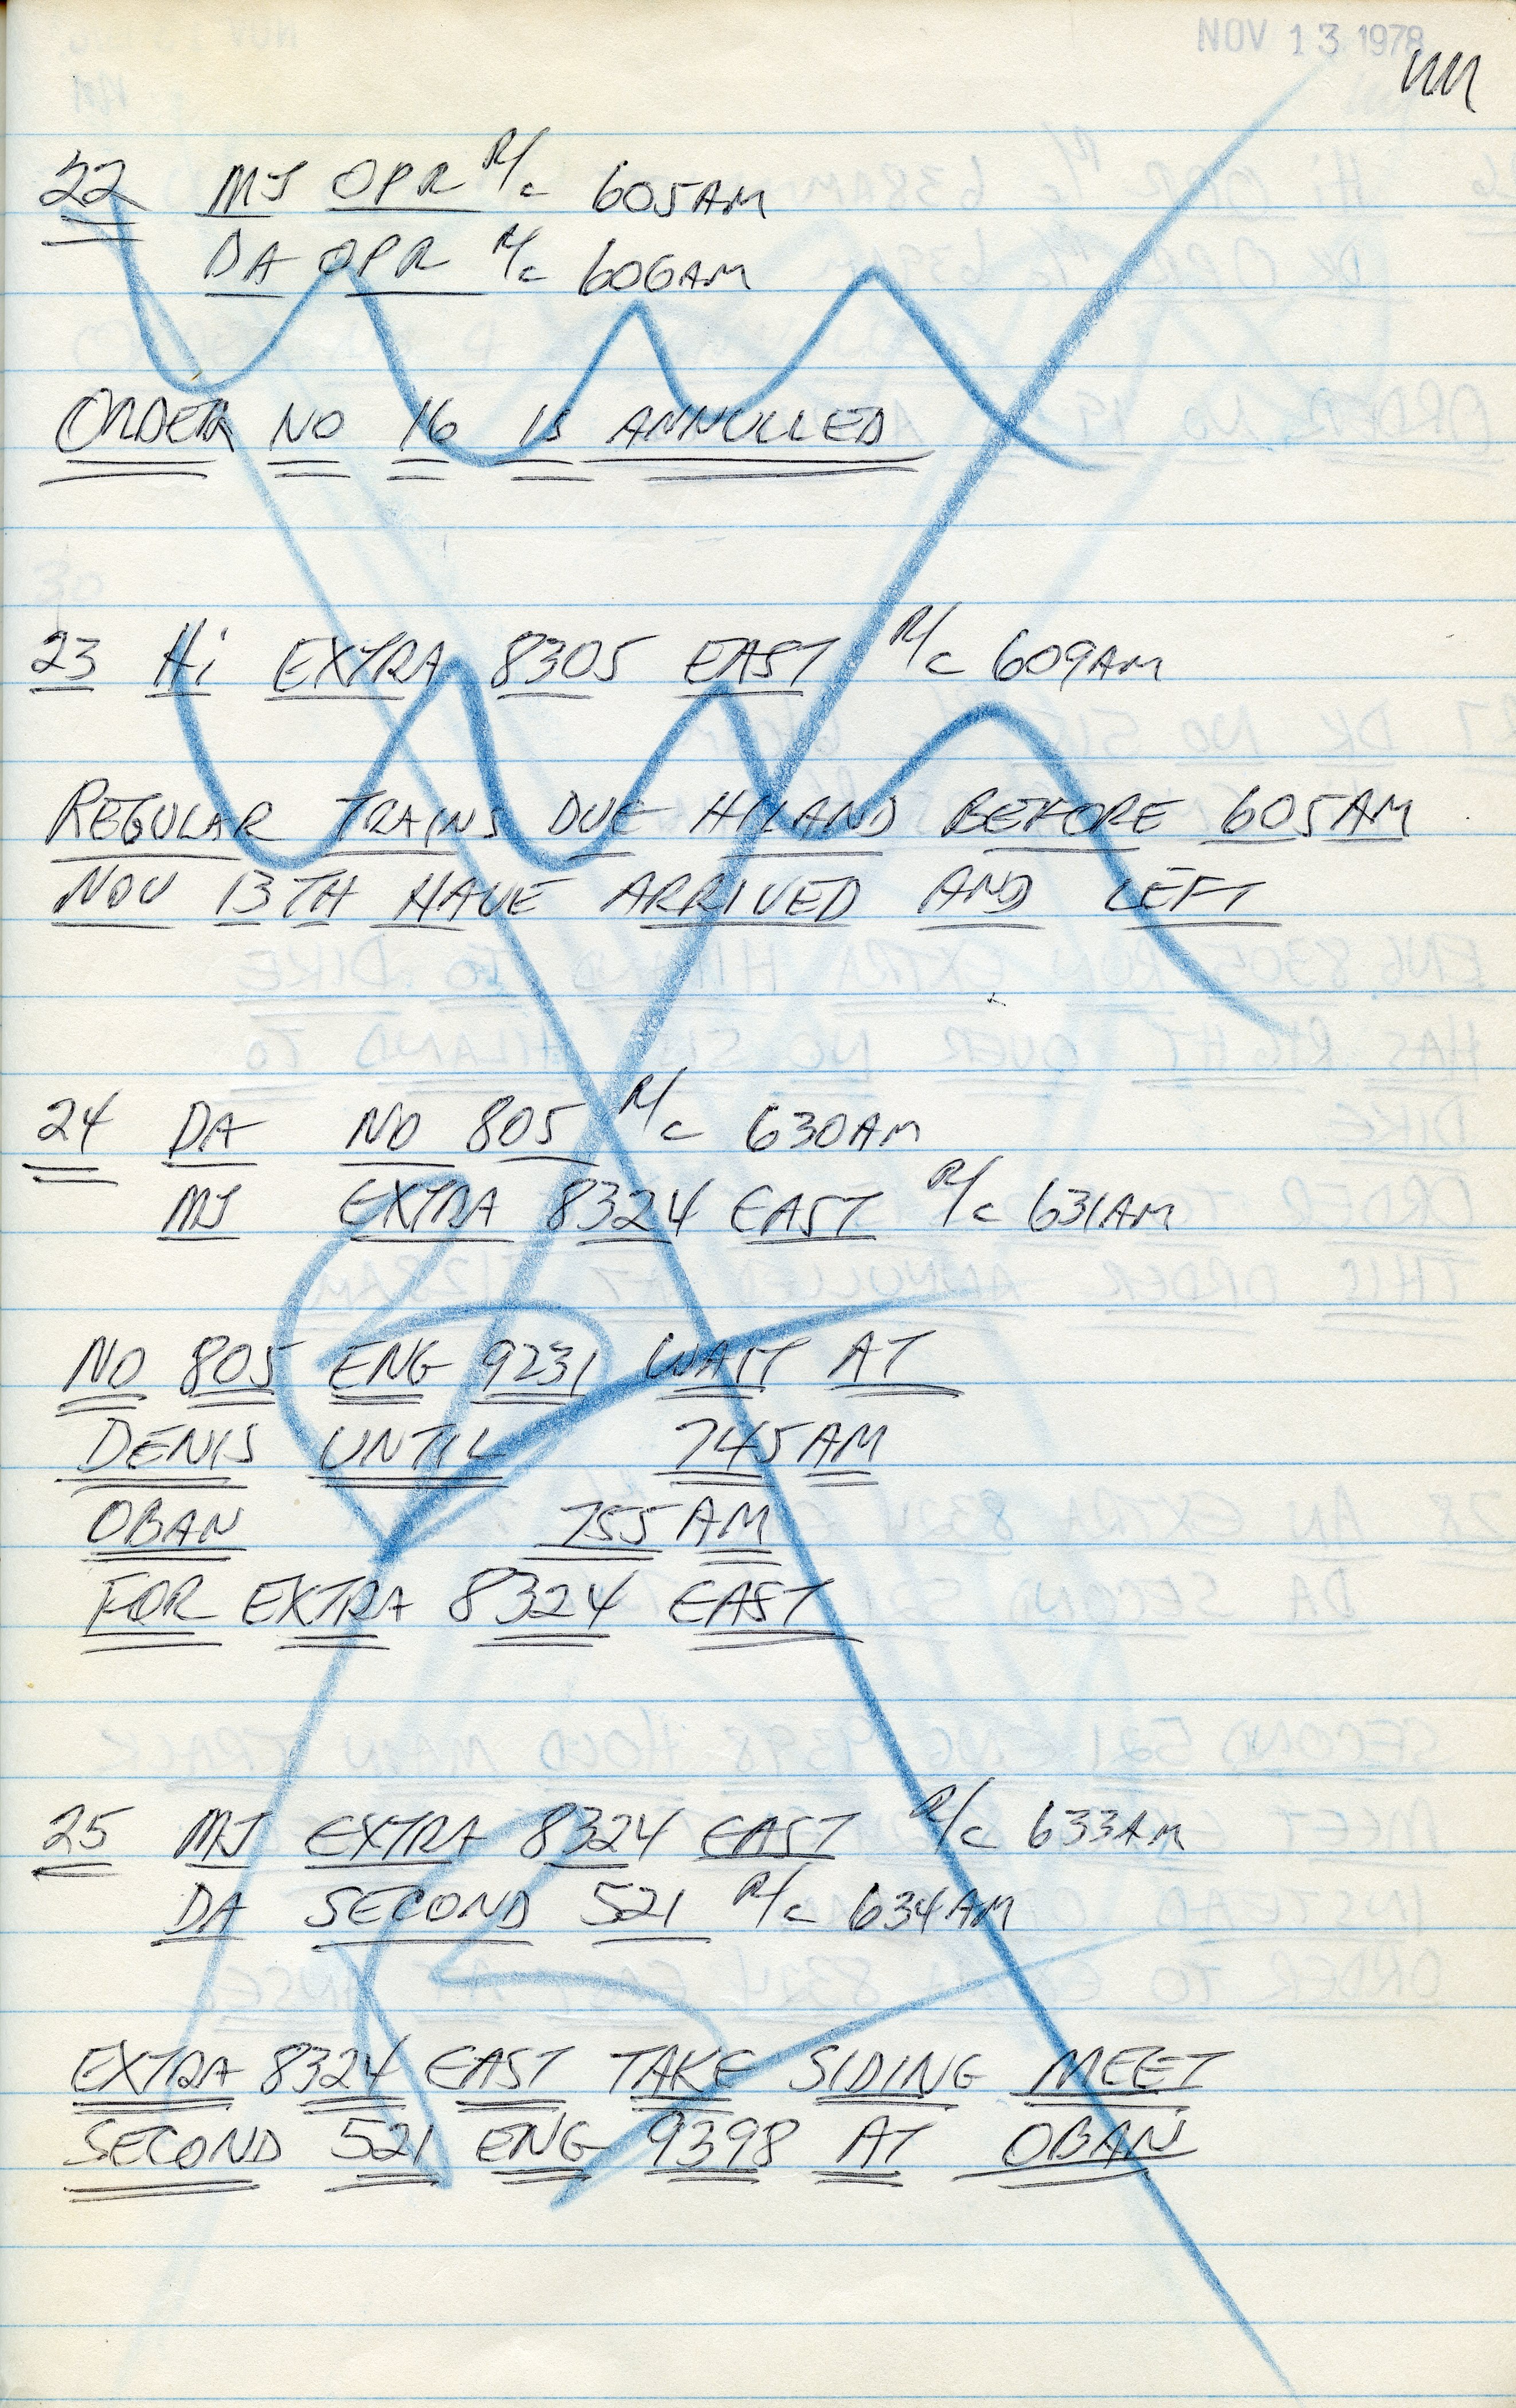 NOV 13 1978
22 MJ OPR R/c 605AM
DA OPR R/c 606AM
ORDER NO 16 IS ANNULLED
23 Hi EXTRA 8305 EAST R/c 609AM
REGULAR TRAINS DUE HILAND BEFORE 605AM
NOV 13TH HAVE ARRIVED AND LEFT
24 DA NO 805 R/c 630AM
MJ EXTRA 8324 EAST R/c 631AM
NO 805 ENG 9231 WAIT AT
DENIS UNTIL 745AM
OBAN 755AM
FOR EXTRA 8324 EAST
25 MJ EXTRA 8324 EAST R/c 633AM
DA SECOND 521 R/c 634AM
EXTRA 8324 EAST TAKE SIDING MEET
SECOND 521 ENG 9398 AT OBAN